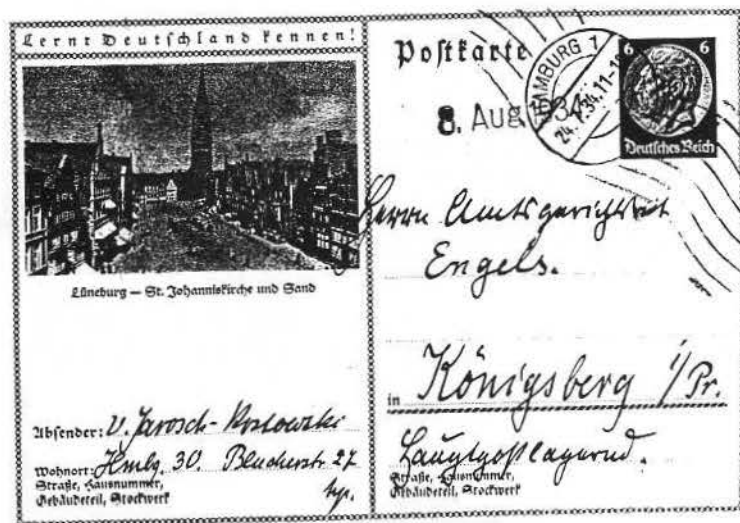 Lernt Deutschland kennen!
Lüneburg — St. Johanniskirche und Sand
Absender: v. Jarosch-
Wohnort: Hmbg. 30. Blücherstr. 27
Straße, Hausnummer,
Gebäudeteil, Stockwerk
Postkarte
HAMBURG 1
8. Aug 1934
6 6
Deutsches Reich
Herrn Amtsgerichtsrat
Engels.
in Königsberg i/Pr.
Hauptpostlagernd.
Straße, Hausnummer,
Gebäudeteil, Stockwerk